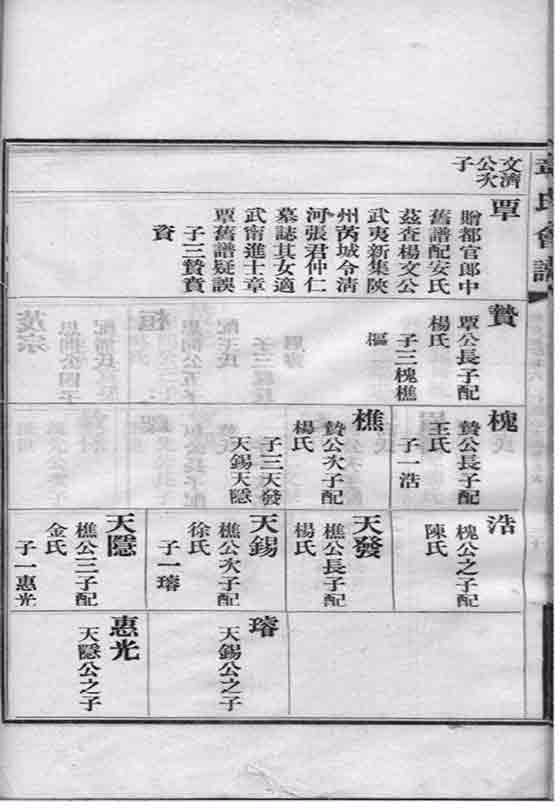 章氏會譜
文濟
公次
子
覃
贈都官郎中
舊譜配安氏
茲查楊文公
武夷新集陝
州芮城令清
河張君仲仁
墓誌其女適
武甯進士章
覃舊譜疑誤
子三贄賁
資
贄
覃公長子配
楊氏
子三槐樵
樞
槐
贄公長子配
王氏
子一浩
樵
贄公次子配
楊氏
子三天發
天錫天隱
浩
槐公之子配
陳氏
天發
樵公長子配
楊氏
天錫
樵公次子配
徐氏
子一璿
天隱
樵公三子配
金氏
子一惠光
璿
天錫公之子
惠光
天隱公之子